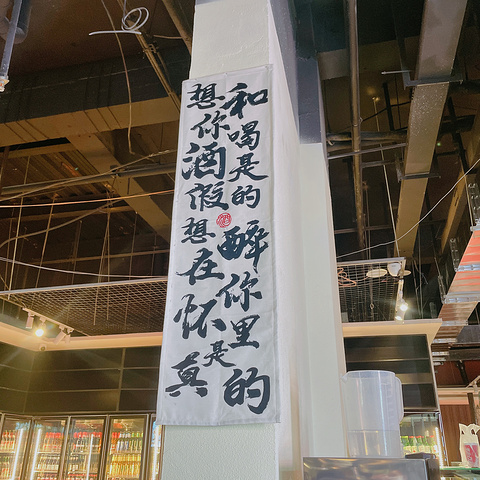 想和你喝酒是假的
想醉在你怀里是真的